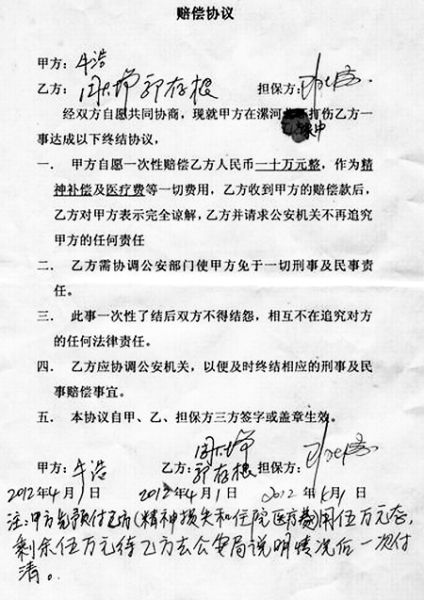 赔偿协议
甲方：牛浩
乙方：周 郭存根 担保方：
经双方自愿共同协商，现就甲方在漯河 打伤乙方一
事达成以下终结协议，
一． 甲方自愿一次性赔偿乙方人民币一十万元整，作为精
神补偿及医疗费等一切费用，乙方收到甲方的赔偿款后，
乙方对甲方表示完全谅解，乙方并请求公安机关不再追究
甲方的任何责任
二． 乙方需协调公安部门使甲方免于一切刑事及民事责
任。
三． 此事一次性了结后双方不得结怨，相互不在追究对方
的任何法律责任。
四． 乙方应协调公安机关，以便及时终结相应的刑事及民
事赔偿事宜。
五． 本协议自甲、乙、担保方三方签字或盖章生效。
甲方：牛浩 乙方：周 郭存根 担保方：
2012年4月1日 2012年4月1日 2012年 月1日
注：甲方先预付乙方(精神损失和住院医疗费)用伍万元整，
剩余伍万元待乙方去公安局说明情况后一次付
清。